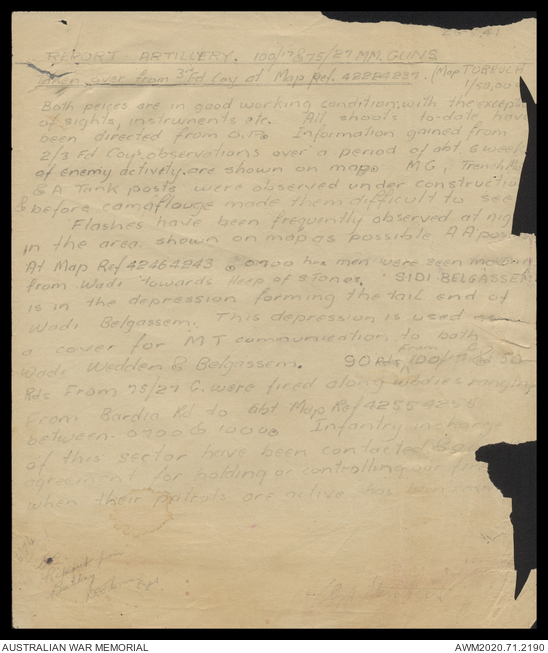 REPORT ARTILLERY. 100/17 & 75/27 MM. GUNS
taken over from 3rd Fd Coy at Map Ref. 42224237. (Map TOBRUCH
1/50,00
Both peices are in good working condition, with the excep
of sights, instruments etc. All shoots to-date have
been directed from O.P. Information gained from
2/3 Fd Coy. observations over a period of abt 6 week
of enemy activity, are shown on map. M G, Trench
& A Tank posts were observed under constructi
& before camaflouge made them difficult to see
Flashes have been frequently observed at nig
in the area shown on map as possible A A pos
At Map Ref 42464243 @ 0700 hrs men were seen
from Wadi towards Heep of Stones. SIDI BELGASSEM
is in the depression forming the tail end of
Wadi Belgassem. This depression is used as
a cover for M T communication to both
Wadis Wedden & Belgassem. 90 Rds from 100/17 & 50
Rds From 75/27 G. were fired along wadies ranging
From Bardia Rd to abt Map Ref 42554258
between 0700 & 1000. Infantry in charge
of this sector have been contacted &
agreement for holding or controlling our fire
when their patrols are active has been
Report from
AUSTRALIAN WAR MEMORIAL
AWM2020.71.2190